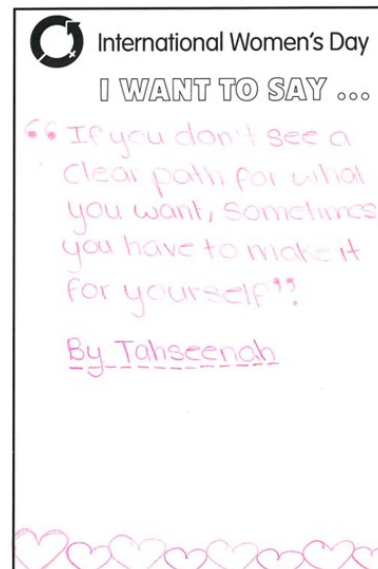 International Women's Day
I WANT TO SAY ...
“If you don't see a
clear path for what
you want, sometimes
you have to make it
for yourself”.
By Tahseenah